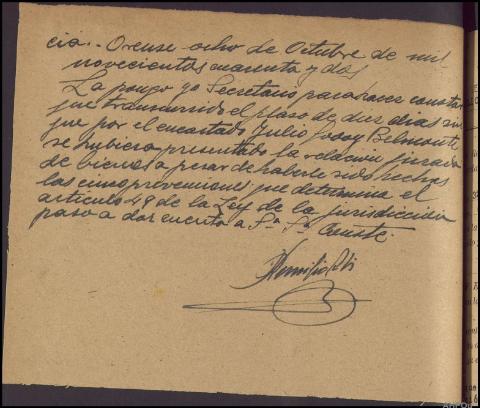 cia.- Orense ocho de Octubre de mil
novecientos cuarenta y dos
La pongo yo Secretario para hacer constar
que transcurrido el plazo de diez dias sin
que por el encartado Julio Godoy Belmonte
se hubiera presentado la relacion jurada
de bienes a pesar de haberle sido hechas
las cinco prevenciones que determina el
articulo 49 de la Ley de la jurisdiccion
paso a dar cuenta a Sª. Sª. Consté.